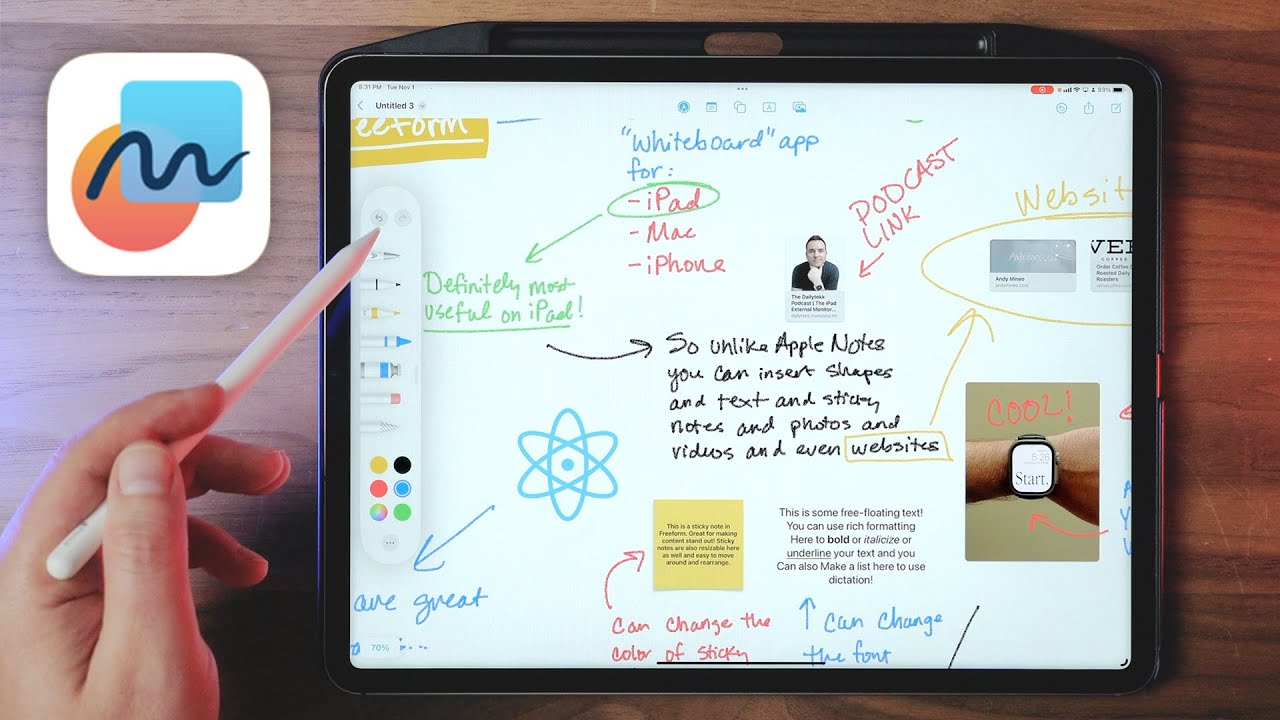 8:31 PM Tue Nov 1
93%
Untitled 3
eeform
"Whiteboard" app
for:
- iPad
- Mac
- iPhone
Definitely most
useful on iPad!
PODCAST
LINK
The Dailytekk
Podcast | The iPad
External Monitor...
Website
Andy Mineo
andymineo.com
VER
COFFEE
Order Coffee
Roasted Daily
Roasters
So unlike Apple Notes
you can insert shapes
and text and sticky
notes and photos and
videos and even websites
COOL!
5:26
Start.
This is a sticky note in
Freeform. Great for making
content stand out! Sticky
notes are also resizable here
as well and easy to move
around and rearrange.
This is some free-floating text!
You can use rich formatting
Here to bold or italicize or
underline your text and you
Can also Make a list here to use
dictation!
are great
Can change the
color of sticky
Can change
the font
70%